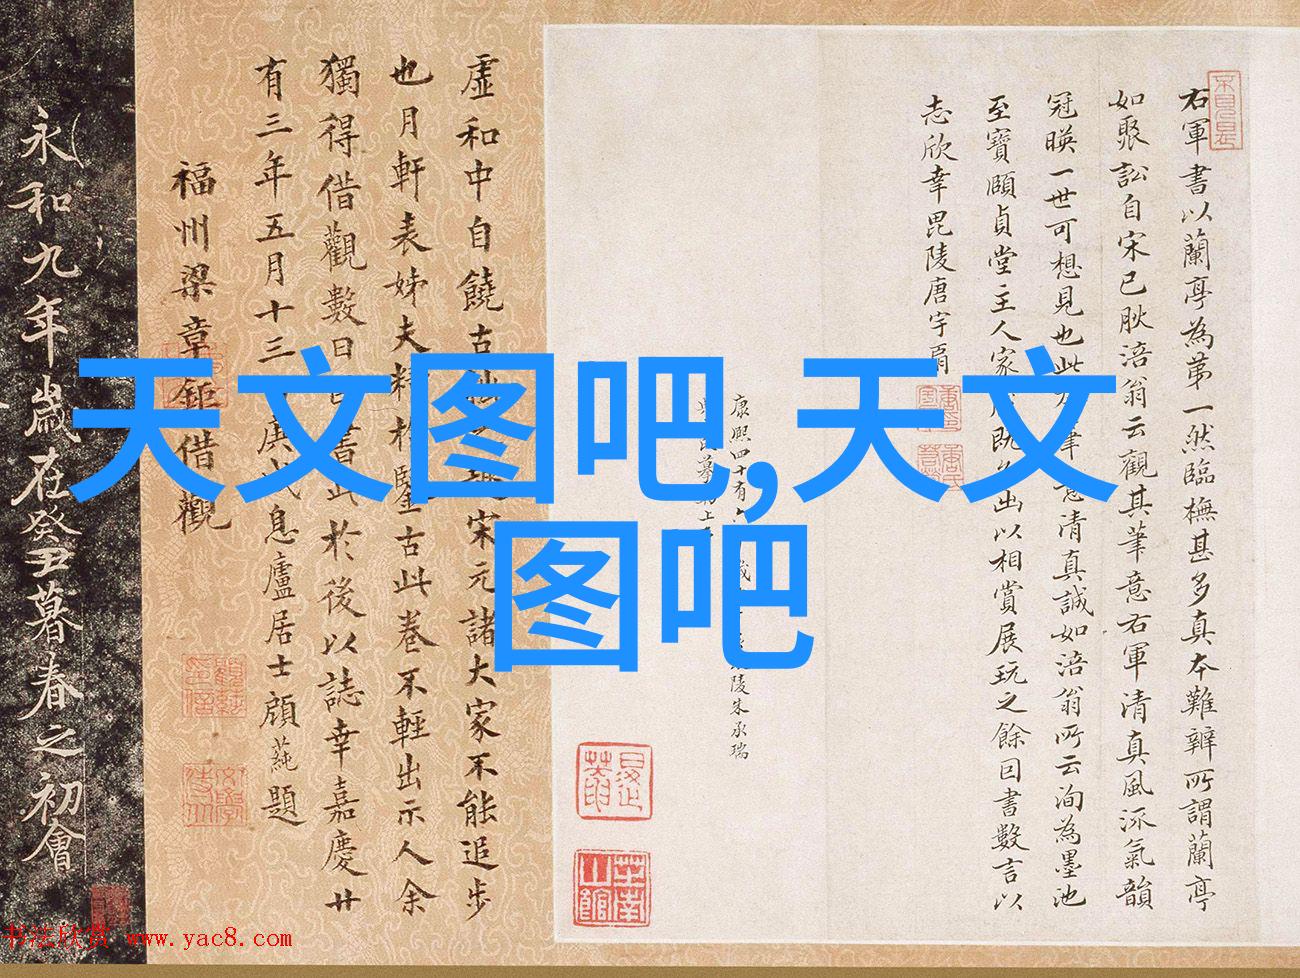 右軍書以蘭亭為苐一然臨橅甚多真本難辨所謂蘭亭
如聚訟自宋已肰涪翁云觀其筆意右軍清真風流氣韻
冠暎一世可想見也此筆意清真誠如涪翁所云洵為墨池
至寶頤貞堂主人家既出以相賞展玩之餘因書數言以
志欣幸毘陵唐宇肩
康熙四十有六
陵朱承瑞
虛和中自饒古宋元諸大家不能追步
也月軒表姊夫精於鑒古此卷不輕出示人余
獨得借觀數日書此於後以誌幸嘉慶廿
有三年五月十三庚戌息廬居士顧蒓題
福州梁章鉅借觀
永和九年歲在癸丑暮春之初會
天文图吧,天文
图吧
书法欣赏 www.yac8.com